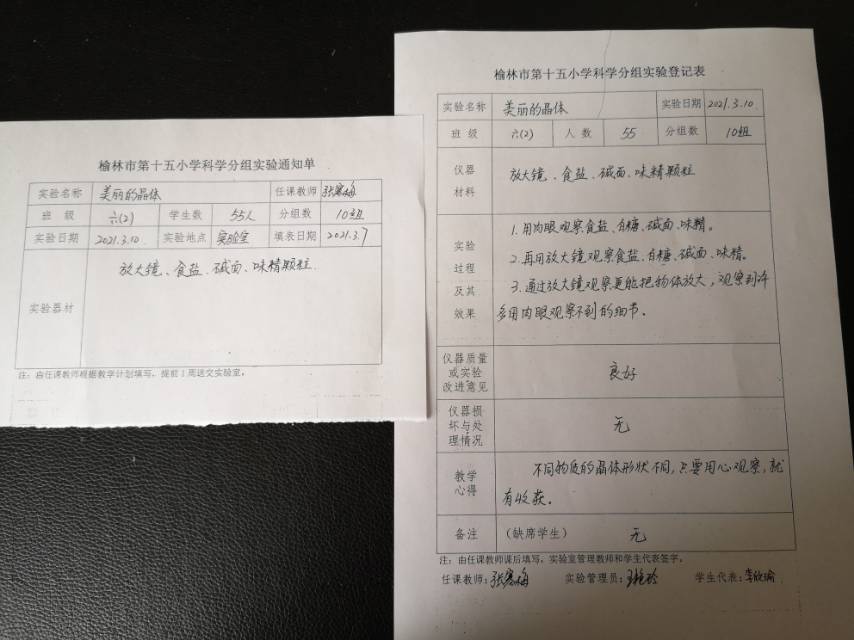 榆林市第十五小学科学分组实验通知单
实验名称 美丽的晶体 任课教师 张寒梅
班 级 六(2) 学生数 55人 分组数 10组
实验日期 2021.3.10 实验地点 实验室 填表日期 2021.3.7
实验器材 放大镜、食盐、碱面、味精颗粒
注：由任课教师根据教学计划填写，提前1周送交实验室。
榆林市第十五小学科学分组实验登记表
实验名称 美丽的晶体 实验日期 2021.3.10
班 级 六(2) 人 数 55 分组数 10组
仪器
材料
放大镜、食盐、碱面、味精颗粒
实验
过程
及其
效果
1.用肉眼观察食盐、白糖、碱面、味精。
2.再用放大镜观察食盐、白糖、碱面、味精。
3.通过放大镜观察更能把物体放大，观察到许
多用肉眼观察不到的细节。
仪器质量
或实验
改进意见
良好
仪器损
坏与处
理情况
无
教学
心得
不同物质的晶体形状不同，只要用心观察，就
有收获。
备注 （缺席学生） 无
注：由任课教师课后填写，实验室管理教师和学生代表签字。
任课教师：张寒梅 实验管理员： 学生代表：李欣瑜